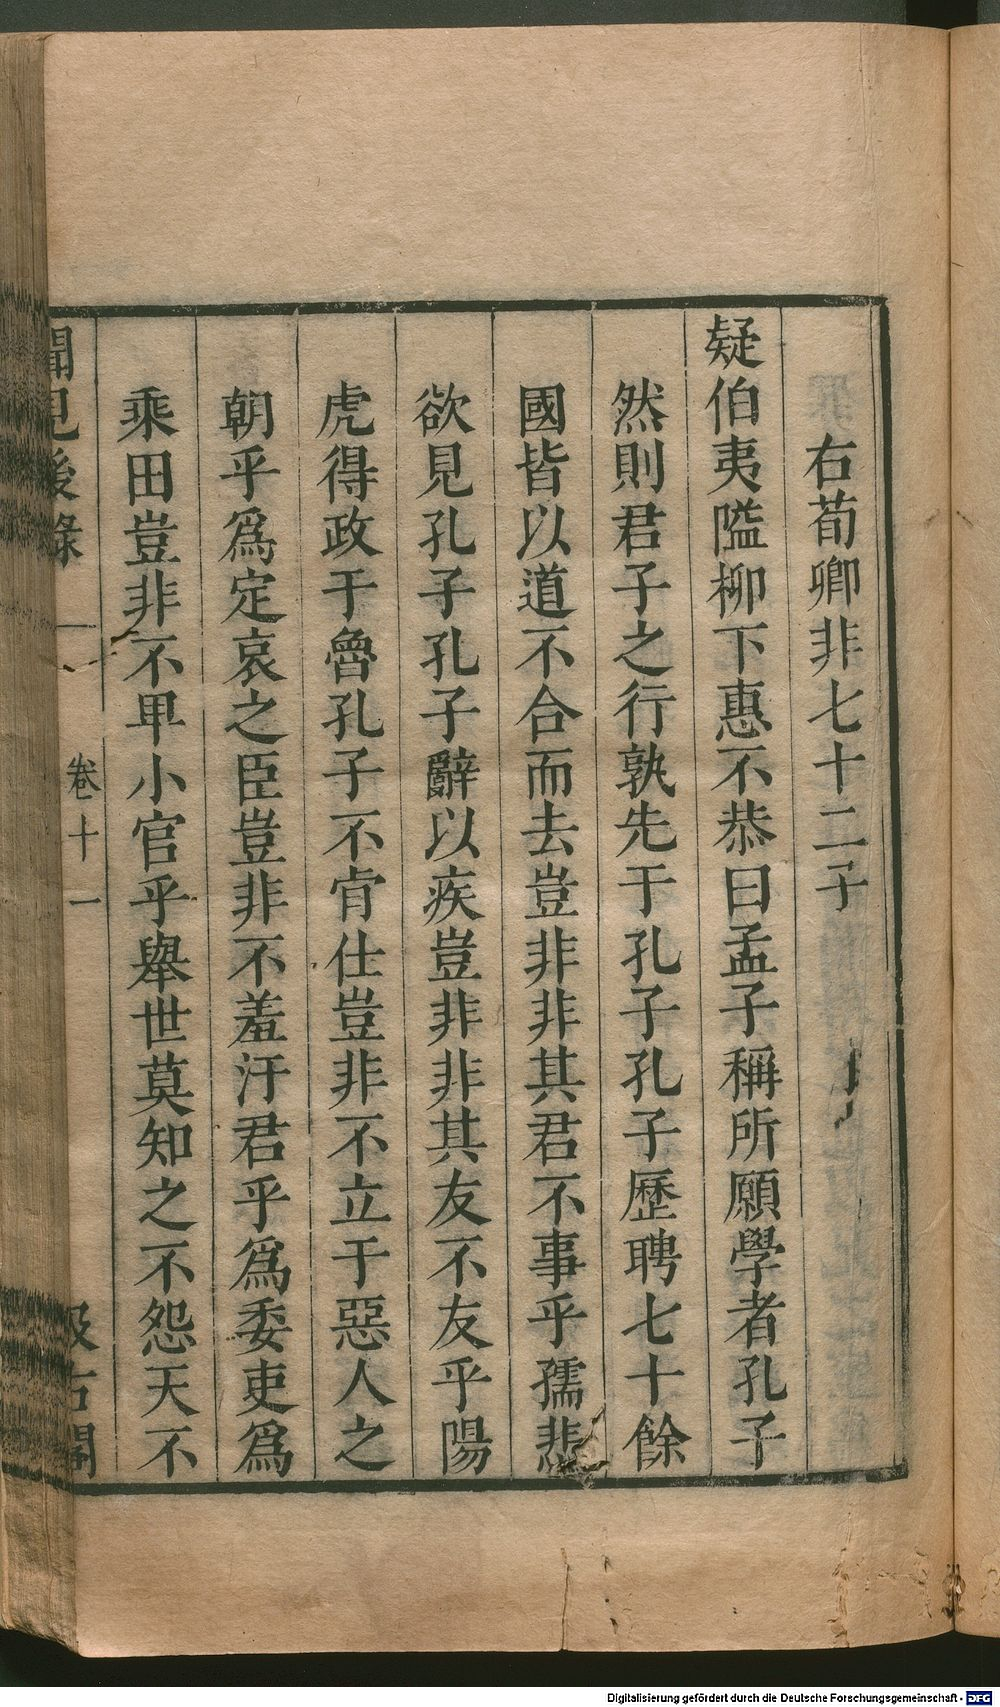 右荀卿非七十二子
疑伯夷隘柳下惠不恭曰孟子稱所願學者孔子
然則君子之行孰先于孔子孔子歷聘七十餘
國皆以道不合而去豈非非其君不事乎孺悲
欲見孔子孔子辭以疾豈非非其友不友乎陽
虎得政于魯孔子不肯仕豈非不立于惡人之
朝乎爲定哀之臣豈非不羞汙君乎爲委吏爲
乘田豈非不卑小官乎舉世莫知之不怨天不
聞見後錄 卷十一 汲古閣
Digitalisierung gefördert durch die Deutsche Forschungsgemeinschaft - DFG